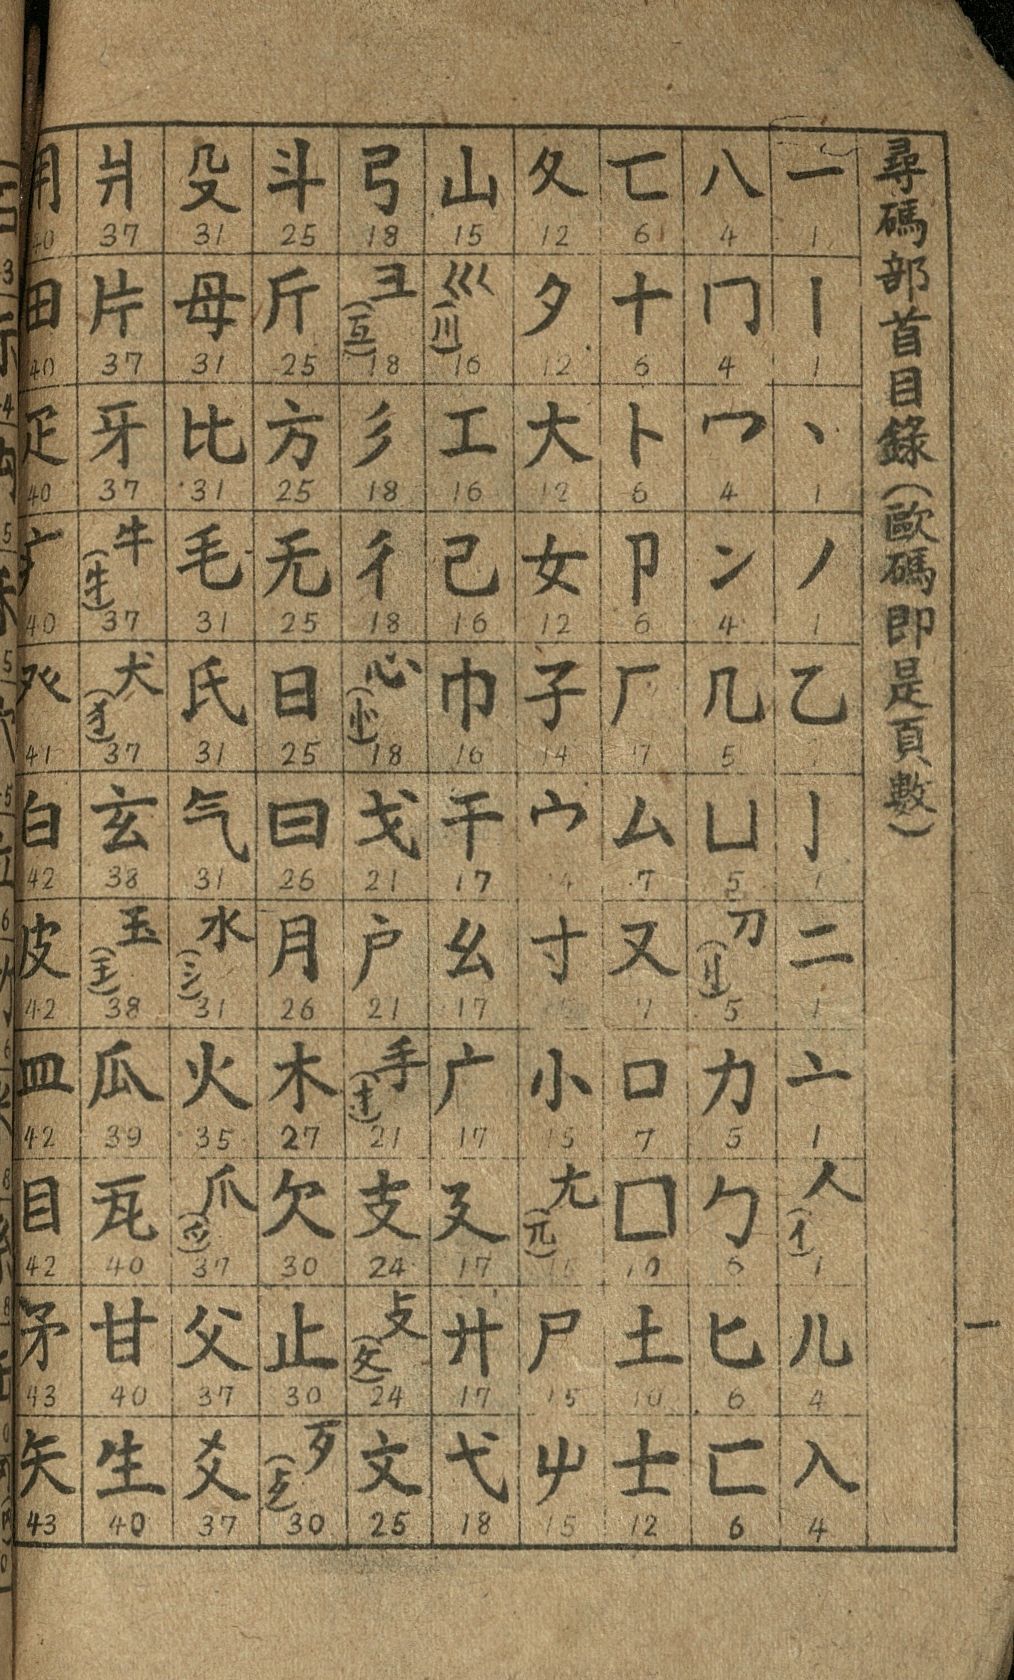 尋碼部首目錄(歐碼即是頁數)
一 1
丨 1
丶 1
丿 1
乙
亅 1
二 1
亠 1
人(亻) 1
儿 4
入 4
八 4
冂 4
冖 4
冫 4
几 5
凵 5
刀(刂) 5
力 5
勹 6
匕 6
匚 6
匸 6
十 6
卜 6
卩 6
厂 7
厶 7
又 7
口 7
囗 10
土 10
士 12
夂 12
夕 12
大 12
女 12
子 14
宀 14
寸
小 15
尢(兀) 15
尸 15
屮 15
山 15
巛(川) 16
工 16
己 16
巾 16
干 17
幺 17
广 17
廴 17
廾 17
弋 18
弓 18
彐(彑) 18
彡 18
彳 18
心(忄) 18
戈 21
戶 21
手(扌) 21
支 24
攴(攵) 24
文 25
斗 25
斤 25
方 25
无 25
日 25
曰 26
月 26
木 27
欠 30
止 30
歹(歺) 30
殳 31
母 31
比 31
毛 31
氏 31
气 31
水(氵) 31
火 35
爪(爫) 37
父 37
爻 37
爿 37
片 37
牙 37
牛(牜) 37
犬(犭) 37
玄 38
玉(王) 38
瓜 39
瓦 40
甘 40
生 40
用 40
田 40
疋 40
疒 40
癶 41
白 42
皮 42
皿 42
目 42
矛 43
矢 43
一